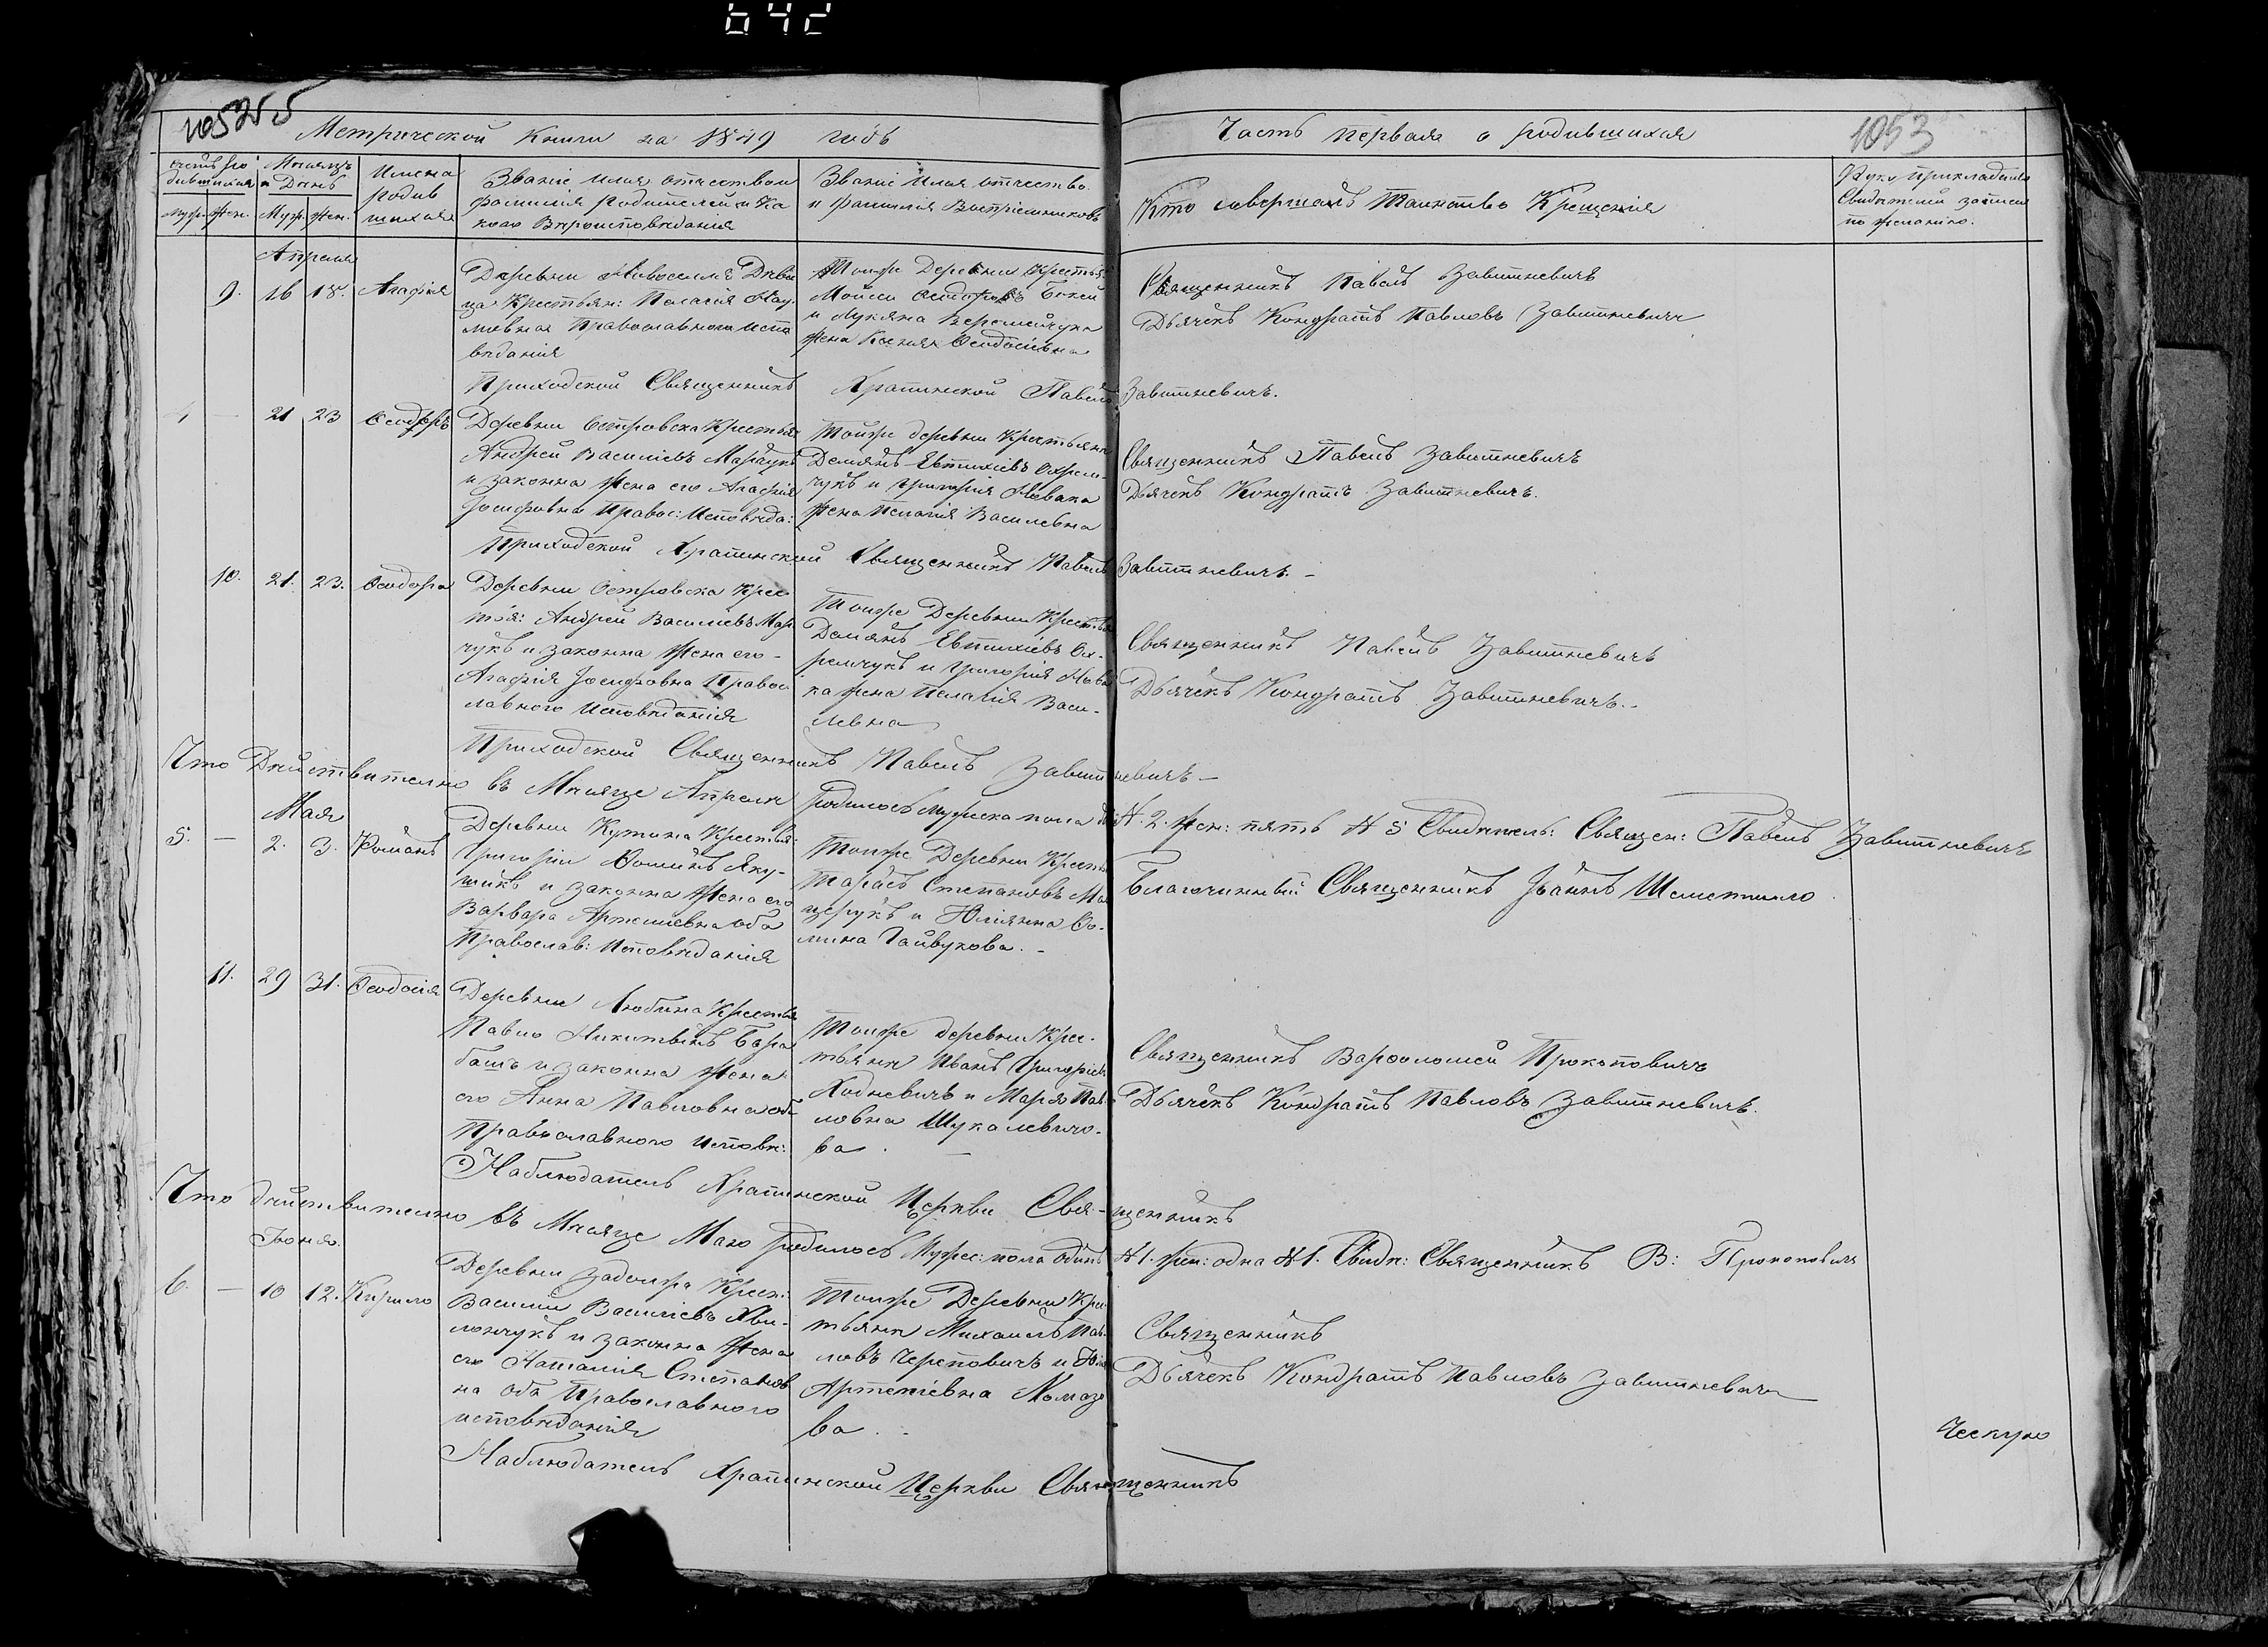 642
Метрической Книги на 1849 годъ
Часть первая о родившихся
1053
Счетъ ро
дившихся
Мѣсяцъ
и День
Имена
родив
шихся
Званіе имя, отчество и
фамилія родителей и ка
кого Вѣроисповѣданія
Званіе имя отчество
и фамилія Воспріемниковъ
Кто совершалъ Таинство Крещенія
Руко прикладство
Свидѣтелей записи
по желанію.
Муж. Жен. Муж. Жен.
Апреля
9. 16 18. Агафія
Деревни Новоселля Дѣви
ца Крестьян: Пелагія Нау
мовна Православного испо
вѣданія
Тойже Деревни Крестья
Мойсей
и Лукяна Веремейчука
жена Ксенія Феодосіевна
Священникъ Павелъ Завитневичъ
Дьячекъ Кондратъ Павловъ Завитневичъ
Приходской Священникъ Храпинской Павелъ Завитневичъ.
4 — 21 23 Феодоръ
Деревни Островска Крестья
Андрей Василіевъ Марчукъ
и законна жена его Агафія
Іосифовна Правос: Исповѣда:
Тойже деревни Крестьяни
Демянъ Евтихіевъ Охрем-
чукъ и Григорія Новака
жена Пелагія Василевна
Священникъ Павелъ Завитневичъ
Дьячекъ Кондратъ Завитневичъ.
Приходской Храпинской Священникъ Павелъ Завитневичъ. –
10. 21. 23. Феодора
Деревни Островска Крес
тья: Андрей Василіевъ Мар
чукъ и законна жена его –
Агафія Іосифовна Правос
лавного Исповѣданія
Тойже Деревни Крестья
Демянъ Евтихіевъ Ох-
ремчукъ и Григорія Нова
ка жена Пелагія Васи-
левна
Священникъ Павелъ Завитневичъ
Дьячекъ Кондратъ Завитневичъ. –
Приходской Священникъ Павелъ Завитневичъ –
Что Дѣйствительно въ Мѣсяце Апреле родилось мужеска пола № 2. жен: пять № 5 Свидѣтель: Священ: Павелъ Завитневичъ
Мая
5. — 2. 3. Романъ
Деревни Кутина Крестья:
Григорій Фоминъ Яку-
шикъ и законна жена его
Варвара Артемиевна оба
Православ: Исповѣданія
Тойже Деревни Крестья
Тарасъ Степановъ Ма
щерукъ и Юліянна Фо-
мина Гайвукова. –
Благочинный Священникъ Іоаннъ Шеметилло
11. 29 31. Феодосія
Деревни Любина Крестья
Павло Никитинъ Бара
башъ и законна жена
его Анна Павловна оба
Православного Исповѣ:
Тойже деревни Крес-
тьяни Иванъ Григоріевъ
Ходневичъ и Марія Пав-
ловна Шукалевичо-
ва.
Священникъ Варфоломей Прокоповичъ
Дьячекъ Кондратъ Павловъ Завитневичъ.
Наблюдатель Храпинской Церкви Священникъ
Что дѣйствительно въ Мѣсяце Маю родилось Мужес: пола одинъ № 1. жен: одна № 1. Свидѣ: Священникъ В: Прокоповичъ
Іюня.
6. — 10 12. Кирило
Деревни Задолжа Крес:
Василій Василіевъ
и законна жена
его Наталія Степанов
на оба Православного
исповѣданія
Тойже Деревни Крес
тьяни Михаилъ Пав-
ловъ Череповичъ и
Артеміевна Комазо
ва. –
Священникъ
Дьячекъ Кондратъ Павловъ Завитневичъ
Наблюдатель Храпинской Церкви Священникъ